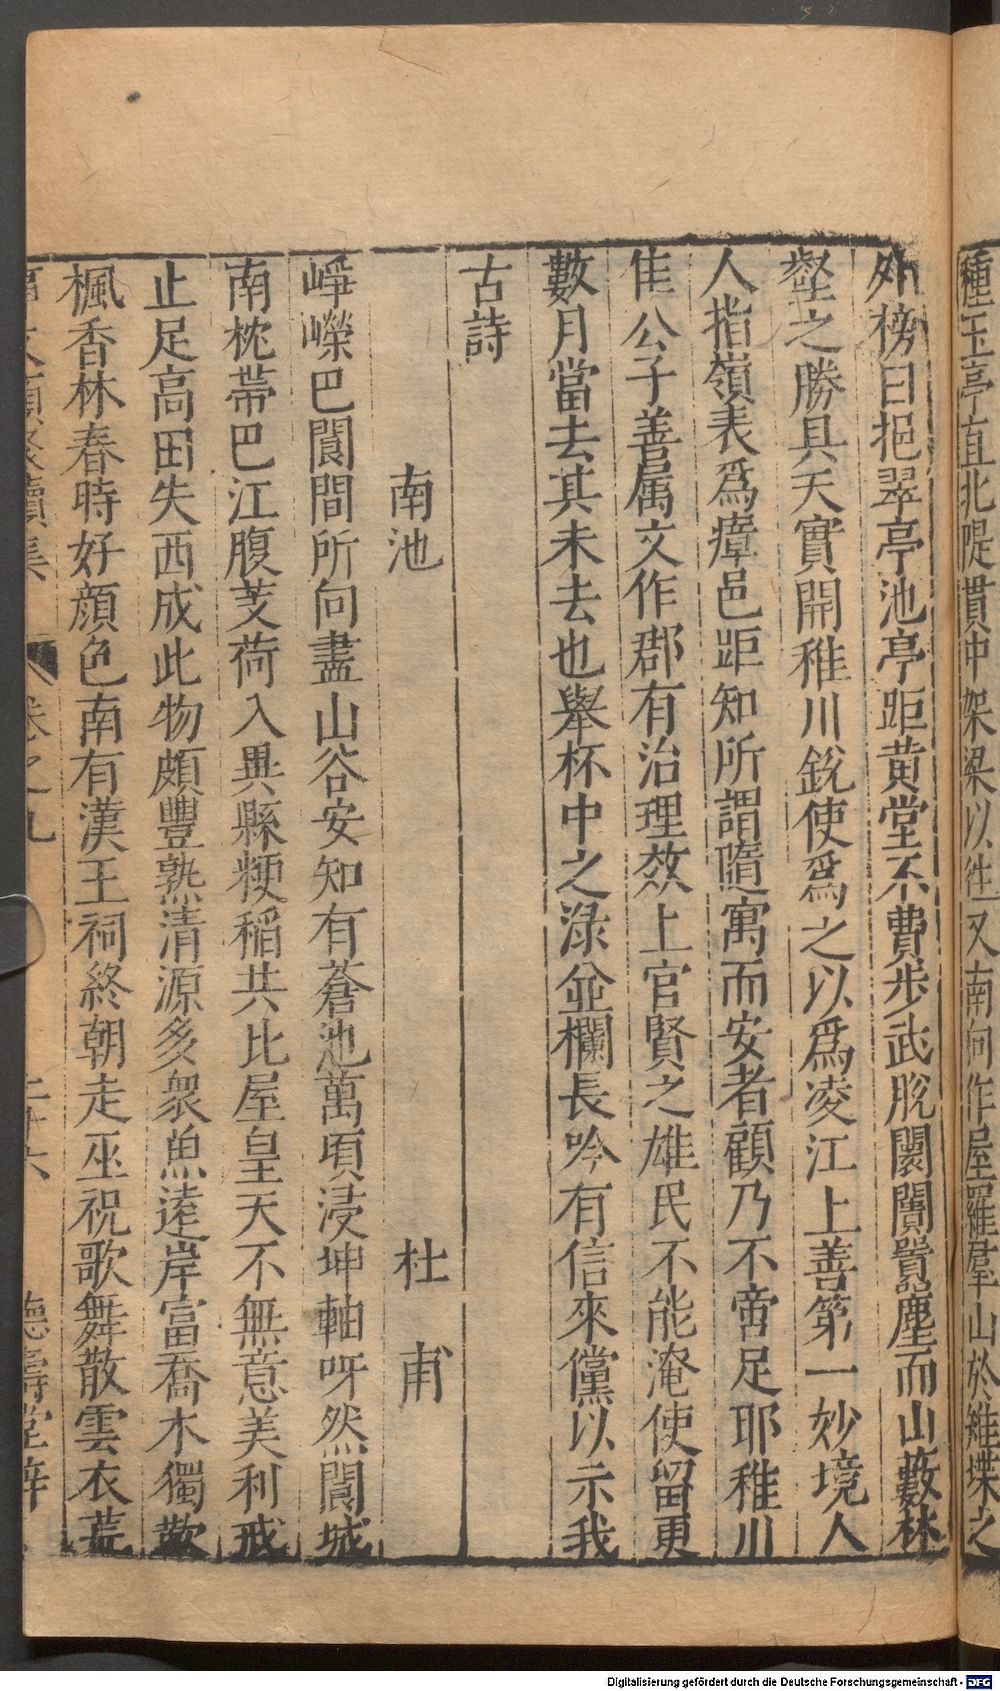 種玉亭直北隄貫中架梁以往又南向作屋羅羣山於雉堞之
外榜曰挹翠亭池亭距黄堂不費步武脫闤闠囂塵而山藪林
壑之勝具天實開稚川銳使爲之以爲凌江上善第一妙境人
人指嶺表爲瘴邑詎知所謂隨寓而安者顧乃不啻足耶稚川
佳公子善属文作郡有治理效上官賢之雄民不能淹使留更
數月當去其未去也舉杯中之渌並欄長吟有信來儻以示我
古詩
南池 杜甫
崢嶸巴閬間所向盡山谷安知有蒼池萬頃浸坤軸呀然閬城
南枕帶巴江腹芰荷入異縣粳稲共比屋皇天不無意美利戒
止足高田失西成此物頗豐熟清源多衆魚逺岸富喬木獨歎
楓香林春時好顔色南有漢王祠終朝走巫祝歌舞散雲衣荒
卷之九 二十六 德壽堂梓
Digitalisierung gefördert durch die Deutsche Forschungsgemeinschaft - DFG